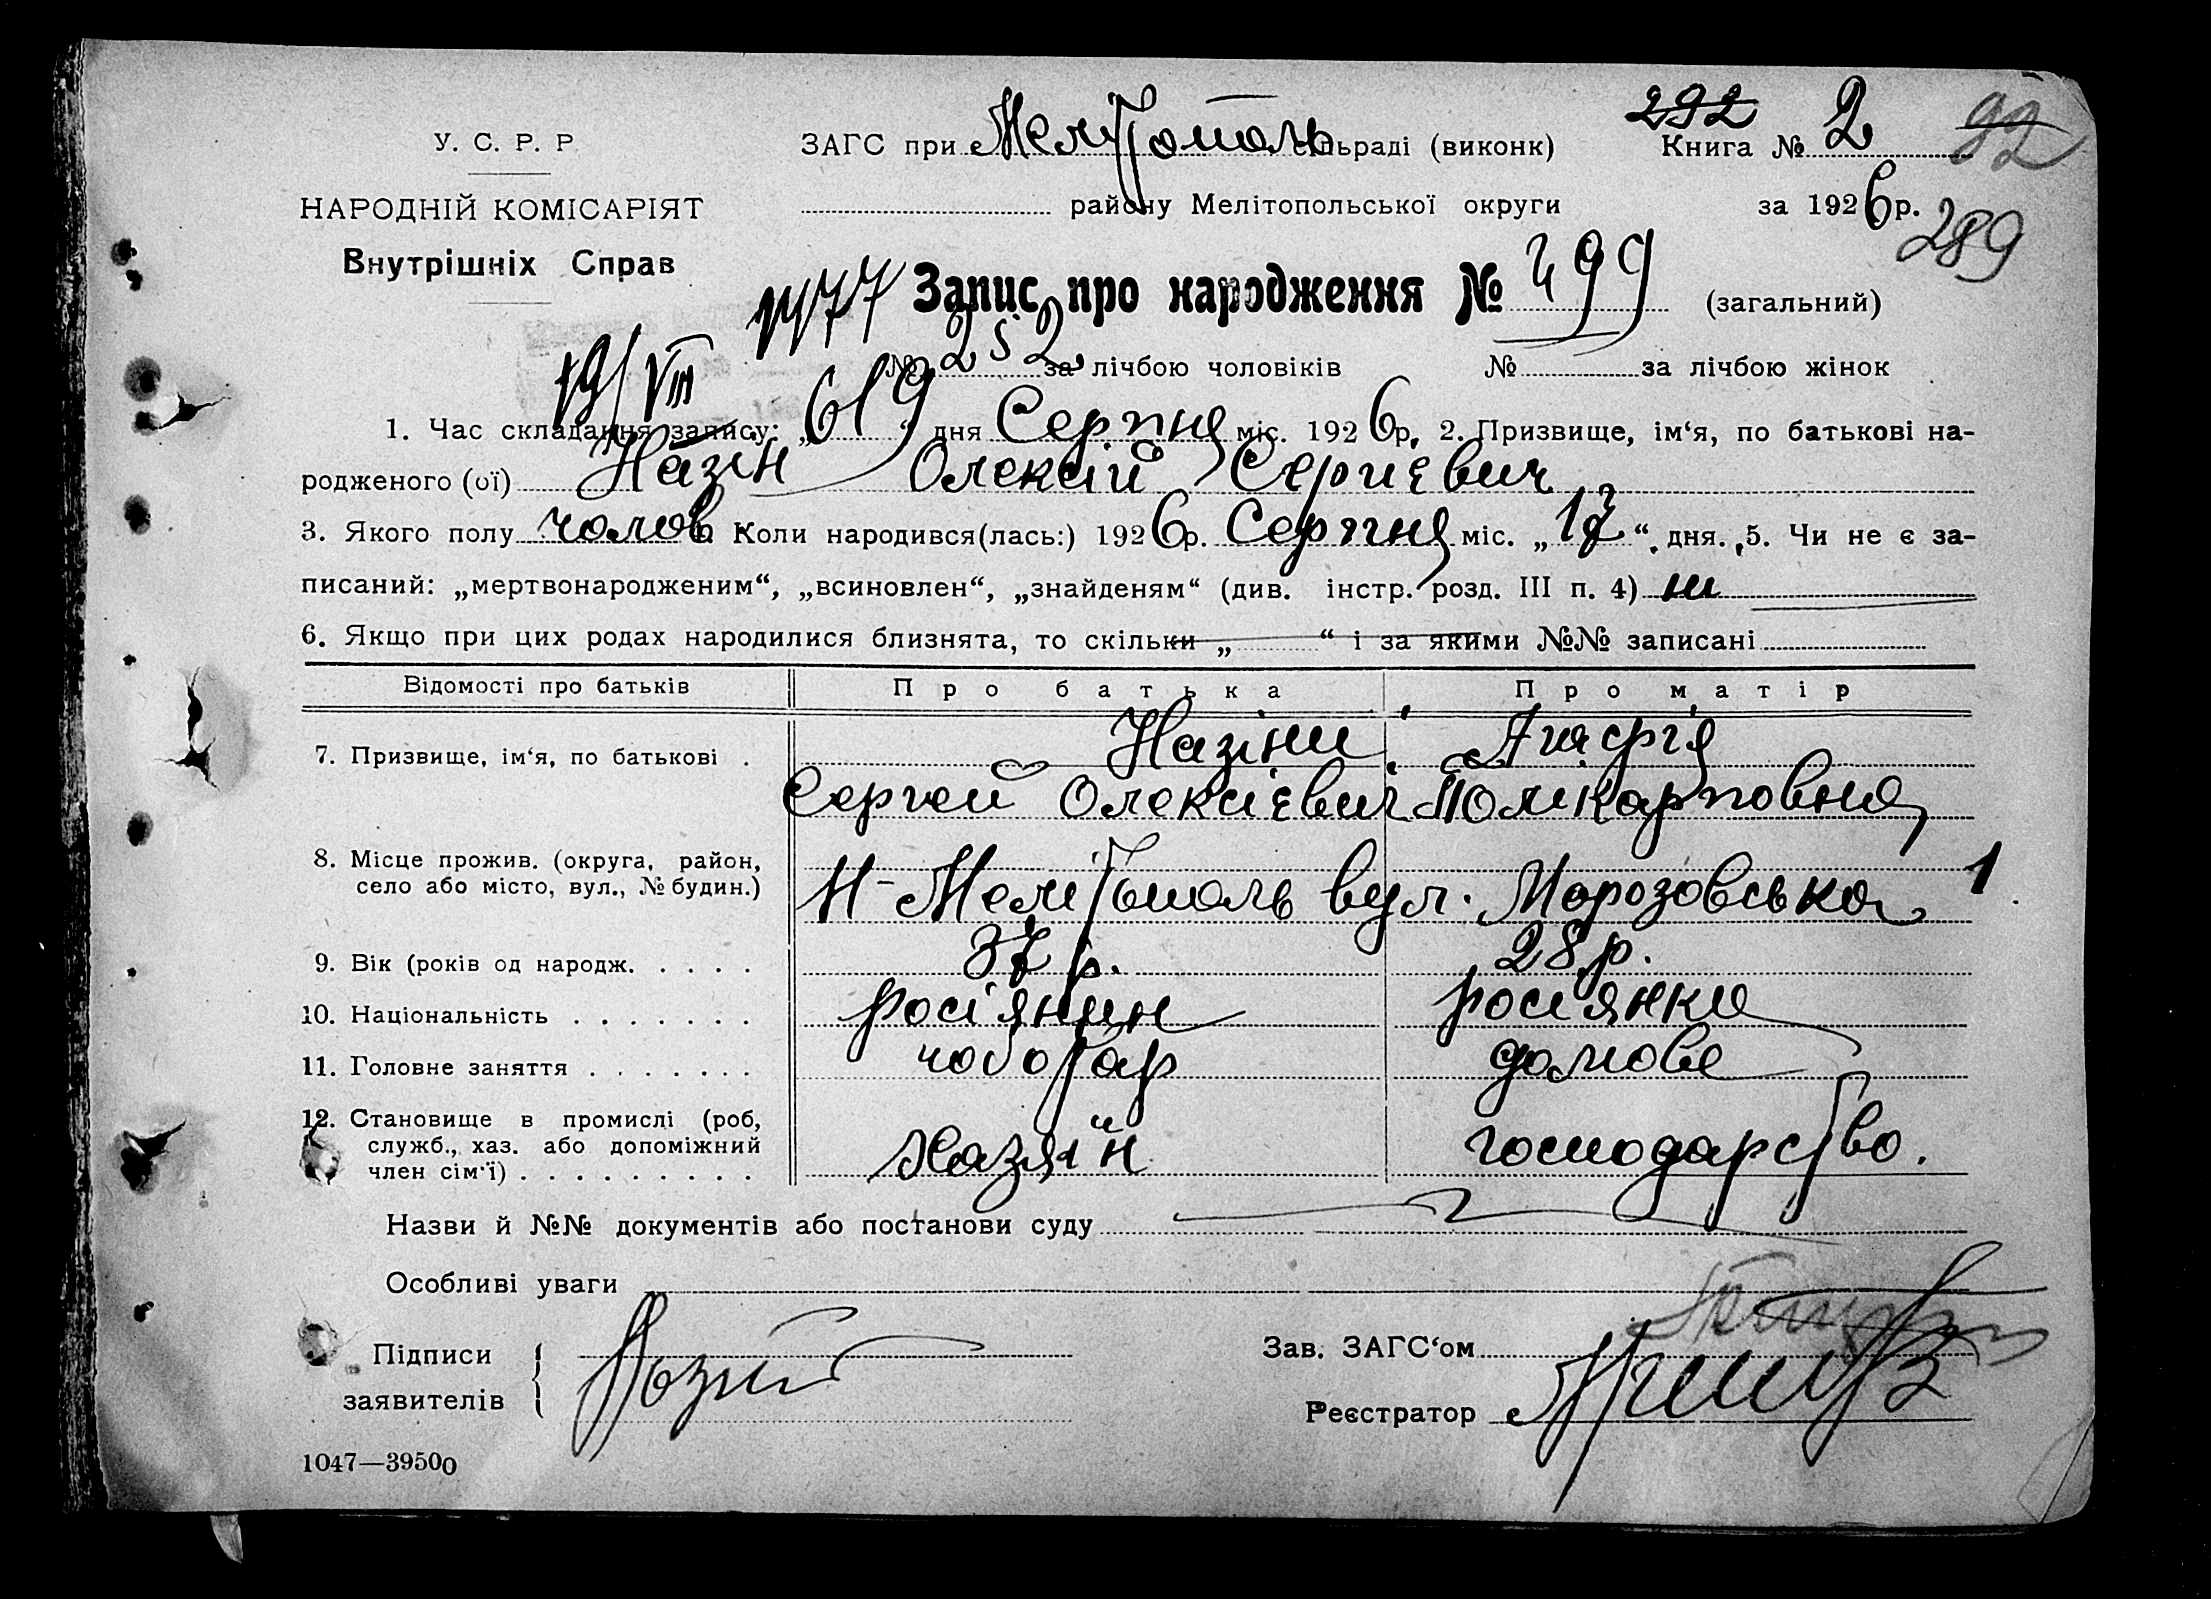 292
У. С. Р. Р. ЗАГС при Мелітополь сільраді (виконк) Книга № 2 92
НАРОДНІЙ КОМІСАРІЯТ району Мелітопольської округи за 1926 р. 289
Внутрішніх Справ
1477 Запис про народження № 499 (загальний)
19/VIII № 252 за лічбою чоловіків № за лічбою жінок
1. Час складання запису: „ 19 “ дня Серпня міс. 1926 р. 2. Призвище, ім‘я, по батькові на-
родженого (ої) Назін Олексій Сергиєвич
3. Якого полу чолов. Коли народився(лась:) 1926 р. Серпня міс. „ 17 “ дня. 5. Чи не є за-
писаний: „мертвонародженим“, „всиновлен“, „знайденям“ (див. інстр. розд. III п. 4) ні
6. Якщо при цих родах народилися близнята, то скільки „ “ і за якими №№ записані
Відомості про батьків Про батька Про матір
7. Призвище, ім‘я, по батькові . Назіни
Сергей Олексієвич Полікарповна
8. Місце прожив. (округа, район,
село або місто, вул., № будин.) Н-Мелітополь вул. Морозовська 1
9. Вік (років од народж. . . . . 37 р. 28 р.
10. Національність . . . . . . . росіянин росіянка
11. Головне заняття . . . . . . . чоботар домове
12. Становище в промислі (роб,
служб., хаз. або допоміжний
член сім‘ї) . . . . . . . . . хазяїн господарство.
Назви й №№ документів або постанови суду
Особливі уваги
Підписи Зав. ЗАГС‘ом
заявителів Реєстратор
1047—39500